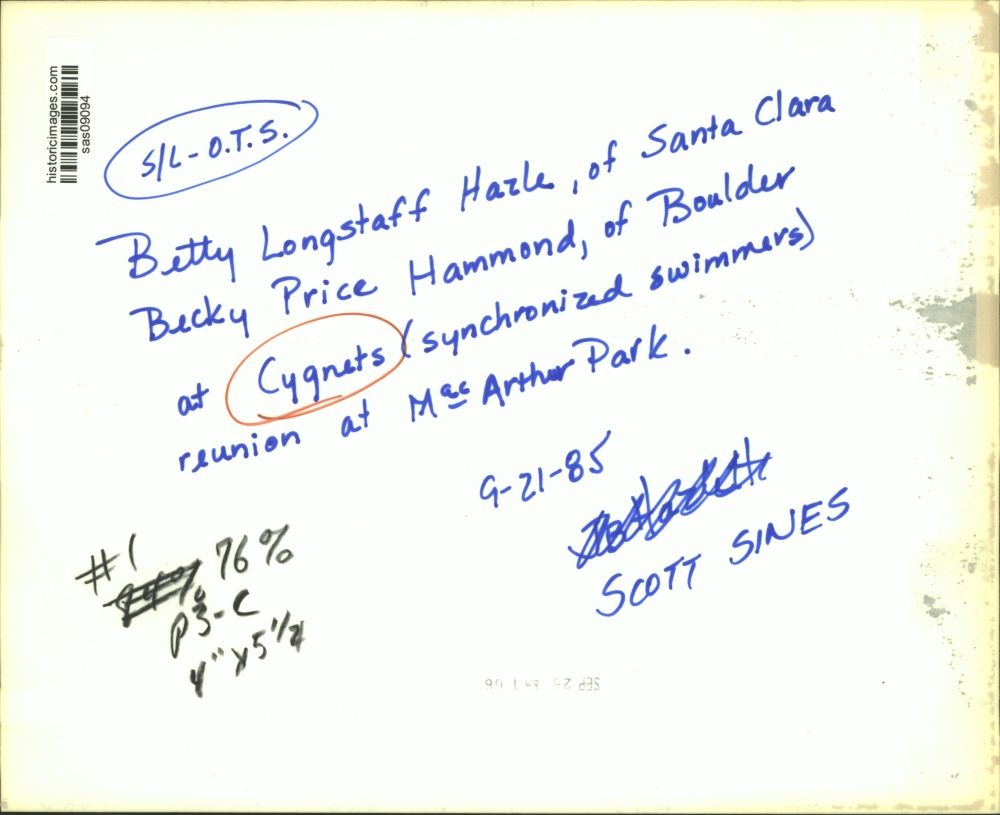 historicimages.com
sas09094
S/L-O.T.S.
Betty Longstaff Hazle, of Santa Clara
Becky Price Hammond, of Boulder
at Cygnets (synchronized swimmers)
reunion at MacArthur Park.
9-21-85
SCOTT SINES
#1
76%
P3-C
4" x 5 1/4
SEP 25